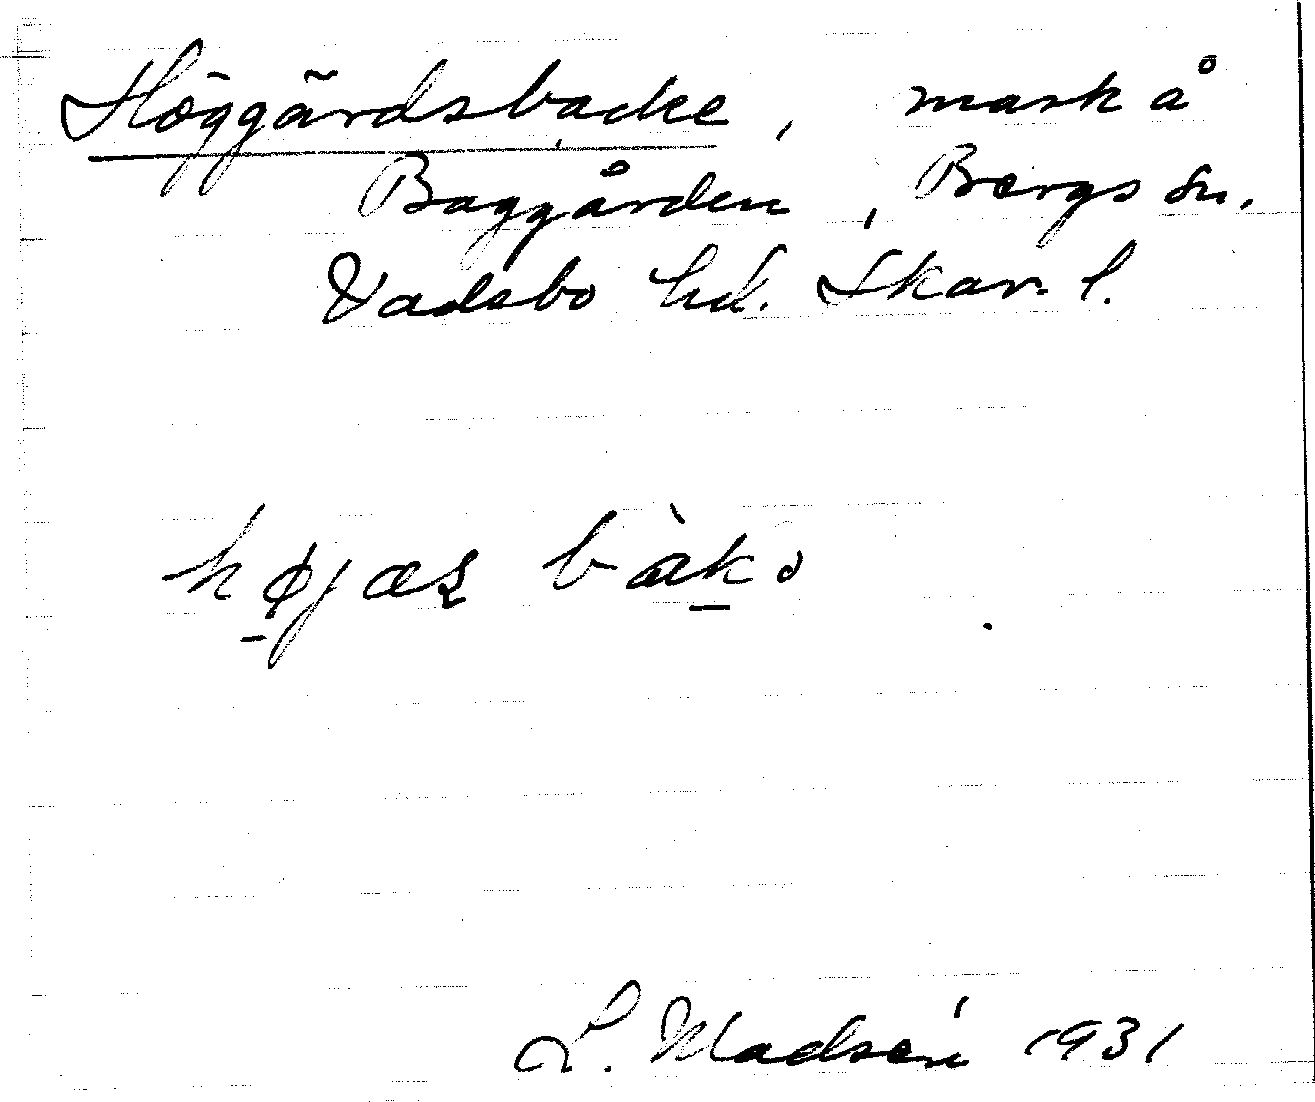 Höggärdsbacke, mark å
Baggården, Bergs sn.
Vadsbo hd. Skar. l.
hø̱jæʂ bàḵə
L. Madsén 1931